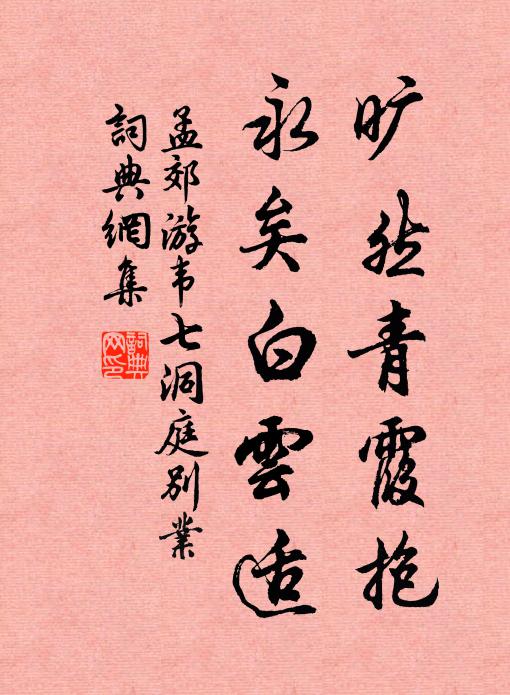 旷然青霞抱
永矣白雲适
孟郊游韦七洞庭别業
詞典網集
詞典网印